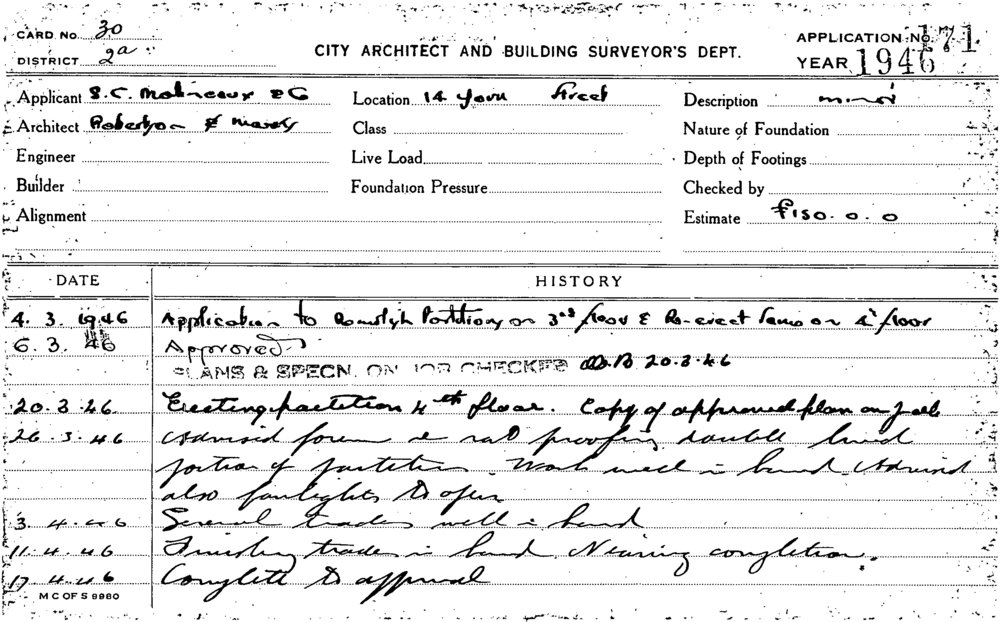 CARD No. 30
DISTRICT 2a
CITY ARCHITECT AND BUILDING SURVEYOR'S DEPT.
APPLICATION No. 171
YEAR 1946
Applicant S.C. Molineaux & Co
Location 14 York Street
Description minor
Architect Robertson & Marks
Class
Nature of Foundation
Engineer
Live Load
Depth of Footings
Builder
Foundation Pressure
Checked by
Alignment
Estimate £150.0.0
DATE HISTORY
4.3.1946 Application to Demolish Partitions on 3rd floor & Re-erect same on 4 floor
6.3.46 Approved
PLANS & SPECN. ON JOB CHECKED 20.3.46
20.3.46. Erecting partition 4th floor. Copy of approved plan on Job
26.3.46 Advised foreman re rat proofing double lined
portion of partition. Work well in hand. Advised
also fanlights to open
3.4.46 Several trades well in hand
11.4.46 Finishing trades in hand. Nearing completion.
17.4.46 Complete to approval
M C OF S 9980